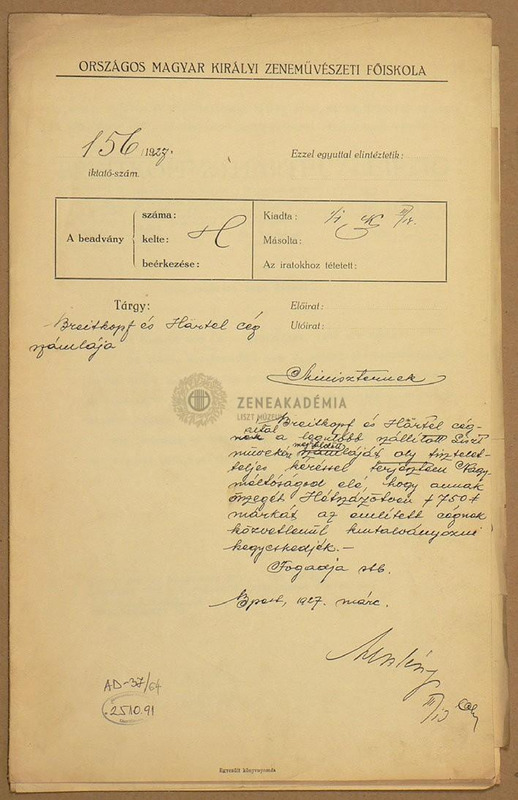 ORSZÁGOS MAGYAR KIRÁLYI ZENEMŰVÉSZETI FŐISKOLA
156/1927.
iktató-szám.
Ezzel egyuttal elintéztetik:
A beadvány
száma:
kelte:
beérkezése:
Kiadta:
Másolta:
Az iratokhoz tétetett:
Tárgy:
Breitkopf és Härtel cég
számlája
Előirat:
Utóirat:
Miniszternek
ZENEAKADÉMIA
LISZT MÚZEUM
Breitkopf és Härtel cég-
által
nek a legutóbb szállított Liszt
művekről számláját oly tisztelet-
teljes kéréssel terjesztem Nagy-
méltóságod elé, hogy annak
összegét Hétszázötven +750+
márkát az említett cégnek
közvetlenül kiutalványozni
kegyeskedjék.-
Fogadja stb.
Bpest, 1927. márc.
III/13
AD-37/64
2510.91
Egyesült könyvnyomda